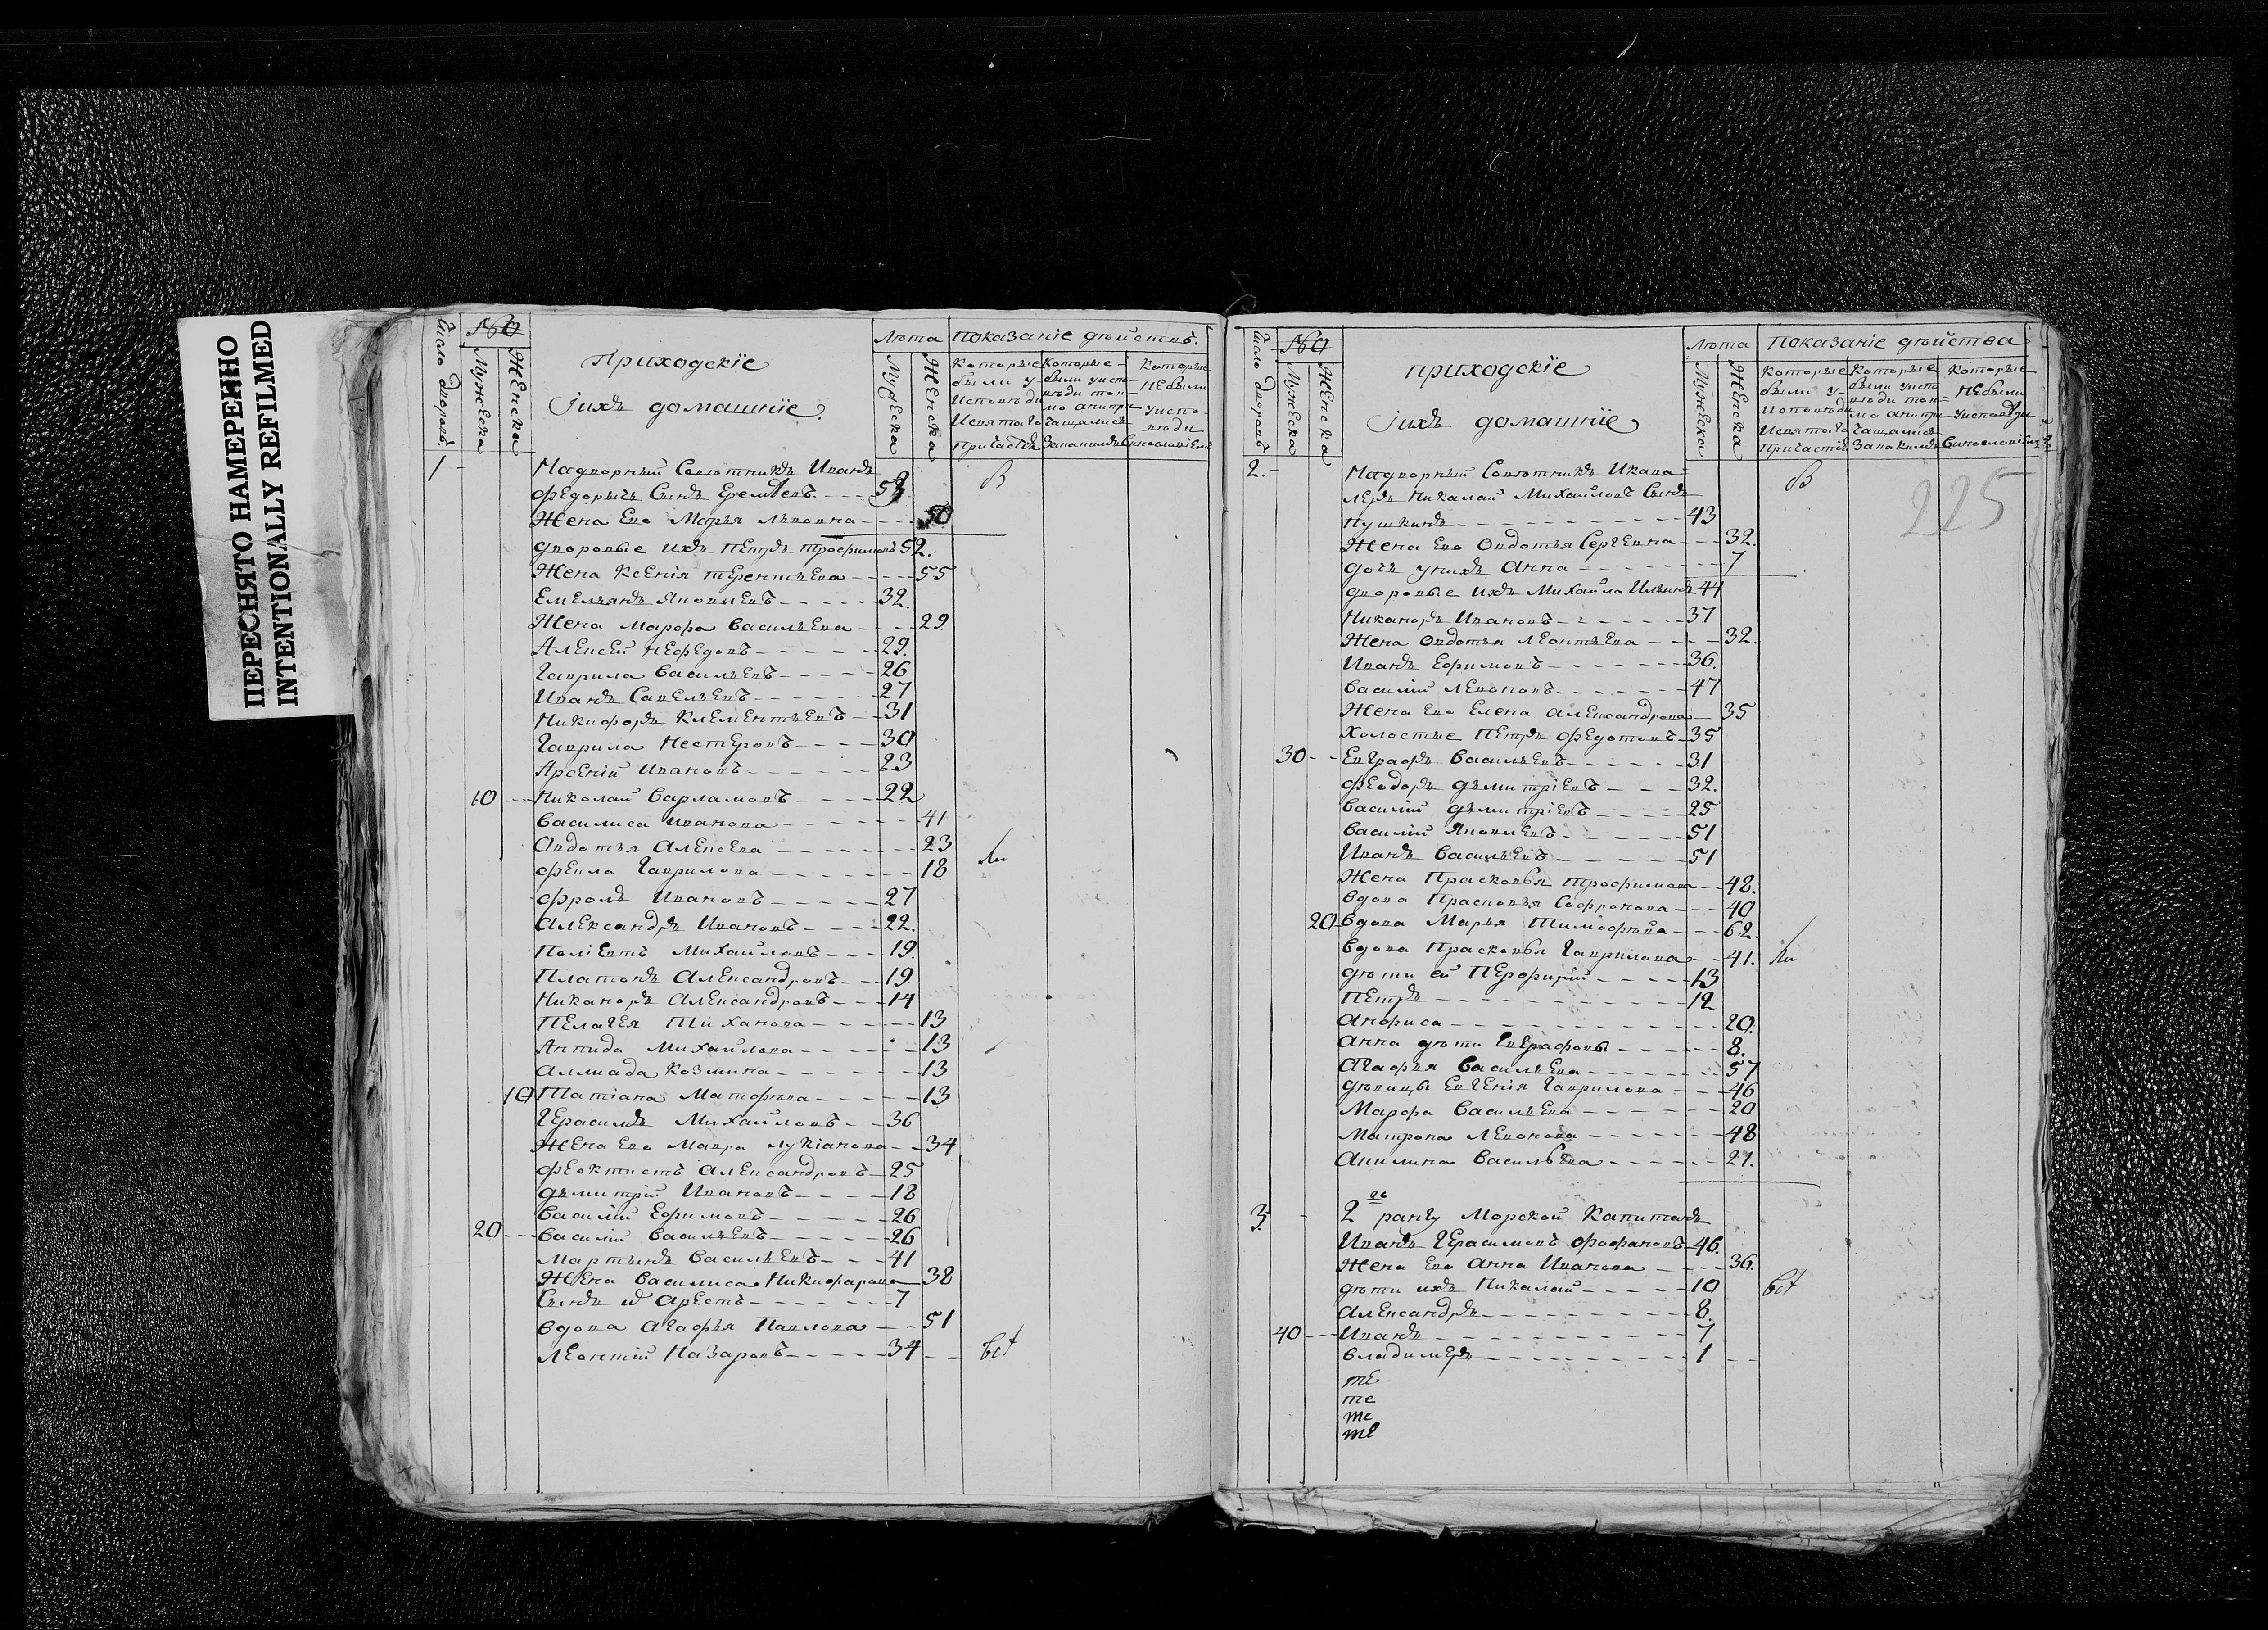 ПЕРЕСНЯТО НАМЕРЕННО
INTENTIONALLY REFILMED
Число дворовъ
№
Мужеска
Женска
Приходскїе
ихъ домашнїе
Лѣта
Мужеска
Женска
Показанїе дѣйствъ.
Которые были у исповѣди и святаго причастїя
Которые были у исповѣди токмо а не причащались
Которые не были у исповѣди
1
Надворный Совѣтникъ Иванъ
Федорычь Сынъ
Жена Ево Марья Львовна 50
дворовые ихъ Петръ трофимовъ 52.
Жена Ксенія терентьева 55
Емельянъ Яковлевъ 32.
Жена марфа васильева 29
Алексей Нефедовъ 29.
Гаврила васильевъ 26
Иванъ Савельевъ 27
Никифоръ Клементьевъ 31
Гаврила Нестеровъ 30
Арсеній Ивановъ 23
10 Николай варламовъ 22
василиса иванова 41
Овдотья Алексева 23
фекла Гаврилова 18
фролъ Ивановъ 27
Александръ Ивановъ 22.
Михайловъ 19.
Платонъ Александровъ 19
Никаноръ Александровъ 14
Пелагея Тиханова 13
Михайлова 13
Козмина 13
10 Татіана Матфѣева 13
Герасимъ Михайловъ 36
Жена Ево Мавра лукіанова 34
феоктистъ Александровъ 25
дьмитрій Ивановъ 18
василій Ефимовъ 26
20 василій васильевъ 26
мартынъ васильевъ 41
Жена василиса Никифарова 38
Сынъ 7
вдова Агафья Павлова 51
Леонтій Назаровъ 34
всѣ
Число дворовъ
№
Мужеска
Женска
приходскїе
ихъ домашнїе
Лѣта
Мужеска
Женска
Показанїе дѣйства
Которые были у исповѣди и святаго причастїя
Которые были у исповѣди токмо а не причащались
Которые не были у исповѣди
225
2.
Надворный Совѣтникъ Икава-
леръ Николай Михайловъ Сынъ
пушкинъ 43
Жена Ево Овдотья Сергевна 32.
дочь унихъ Анна 7
дворовые ихъ Михайла Ильинъ 44
Никаноръ Ивановъ 37
Жена Овдотья леонтьева 32.
Иванъ Ефимовъ 36.
василій левоновъ 47
Жена Ево Елена александрова 35
холостые Петръ федотовъ 35
30 Евграфъ васильевъ 31
феодоръ дьмитріевъ 32.
василій дьмитріевъ 25
василій Яковлевъ 51
Иванъ васильевъ 51
Жена Прасковья трофимова 48.
вдова Прасковья Софронова 40
20 вдова Марья Тимофѣева 62.
вдова Прасковья Гаврилова 41.
дѣти ей Перфирій 13
Петръ 12
Анфиса 20.
Анна дѣти Евграфовы 8.
Агафья васильева 57
дѣвицы Евгенія Гаврилова 46
Марфа васильева 20
Матрона левонова 48
Акилина васильева 21.
3.
2го рангу Морской Капитанъ
Иванъ Герасимовъ Фофановъ 46.
Жена Ево Анна Иванова 36.
дѣти ихъ Николай 10
всѣ
Александръ 8.
40 Иванъ 7
владимеръ 1
те
те
те
те